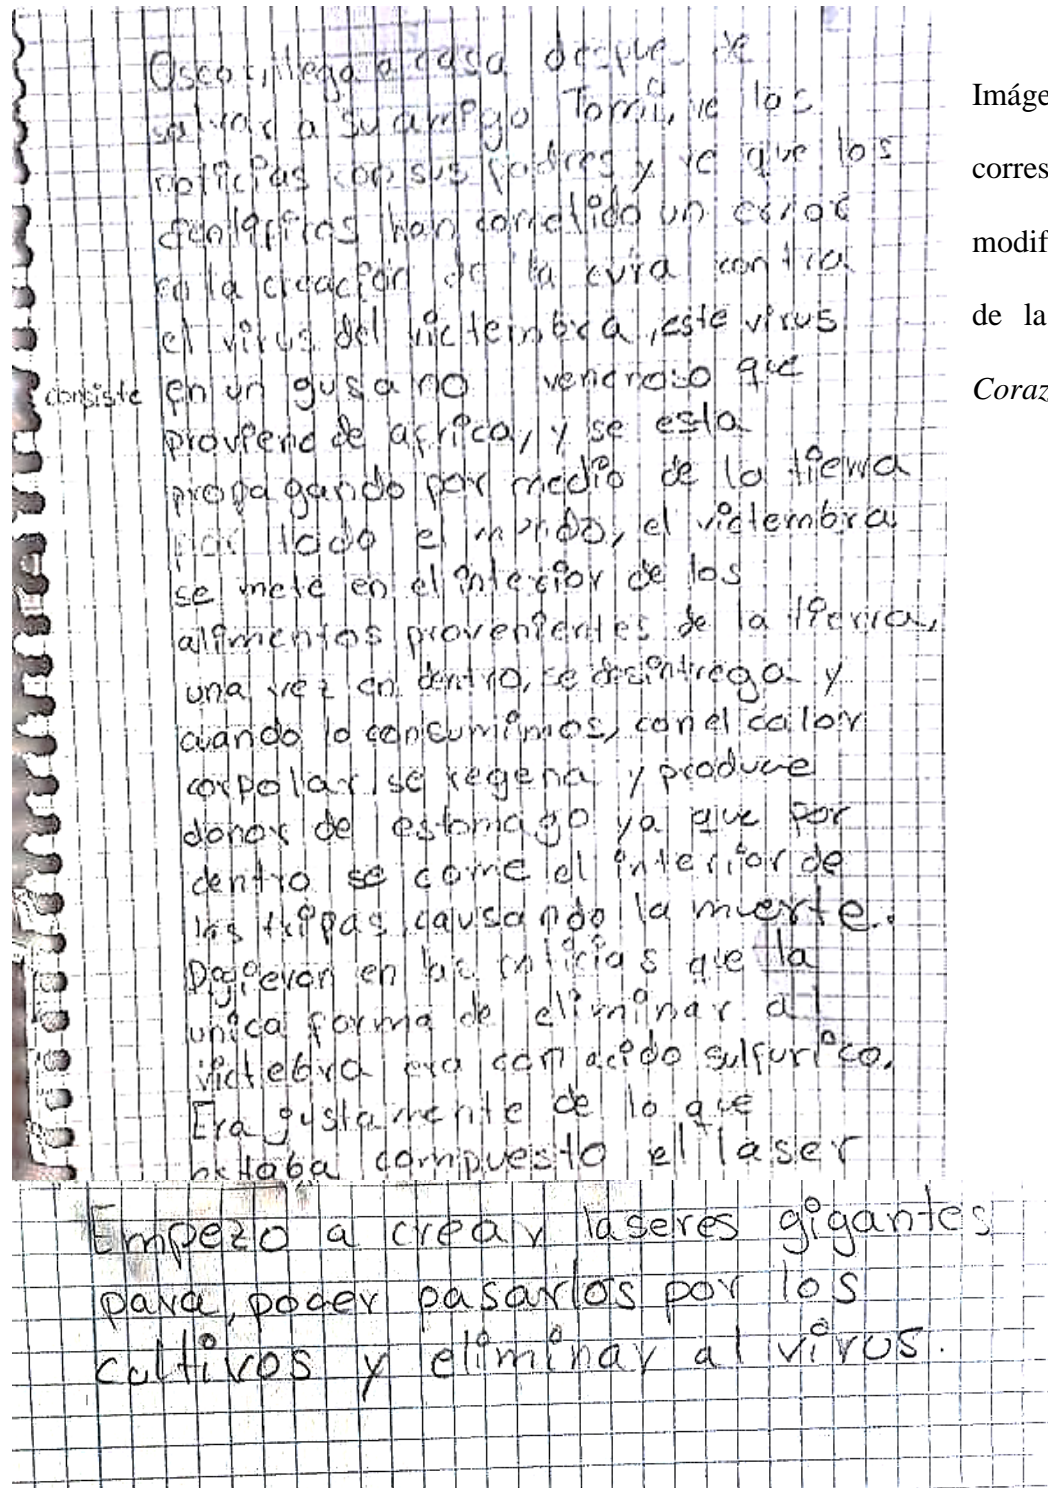 Oscar, llega a casa despue de
salvar a su amigo Tomi, ve las
noticias con sus padres y ve que los
cientificos han cometido un error
en la creación de la cura contra
el virus del victembra, este virus
consiste en un gusano veneroso que
proviene de africa, y se esta
propagando por medio de la tierra
por todo el mundo, el victembra
se mete en el interior de los
alimentos provenientes de la tierra,
una vez en dentro, se desintrega y
cuando lo consumimos, con el calor
corpolar se regena y produce
donor de estomago ya que por
dentro se come el interior de
las tripas causando la muerte.
Digieron en las noticias que la
unica forma de eliminar al
victebra era con acido sulfurico.
Era gustamente de lo que
estaba compuesto el laser
Empezo a crear laseres gigantes
para, poder pasarlos por los
cultivos y eliminar al virus.
Imáge
corres
modif
de la
Coraz